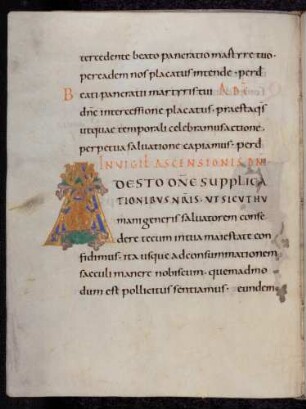 tercedente beato pancratio martyre tuo·
per eadem nos placatus intende · perd
Beati pancratii martyris tui AD
dñe intercessione placatus · praesta q̅s
ut quae temporali celebramus actione ·
perpetua salvatione capiamus · perd
IN VIGIL ASCENSIONIS DNI
ADESTO DÑE SUPPLICA
TIONIBUS NRĪS · UT SICUT HU
mani generis salvatorem conse
dere tecum in tua maiestate con
fidimus · ita usque ad consummationem
saeculi manere nobiscum · quemadmo
dum est pollicitus sentiamus · eundem